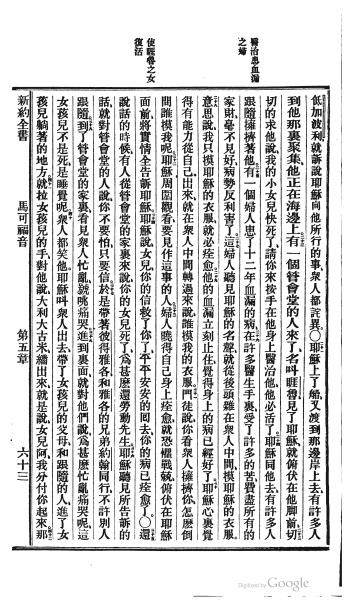 醫治患血漏之婦
使睚魯之女復活
低加波利就訴說耶穌同他所行的事衆人都詫異○耶穌上了船又渡到那邊岸上去有許多人
到他那裏聚集他正在海邊上有一個管會堂的人來了名叫睚魯見了耶穌就俯伏在他脚前切
切的求他說我的小女兒快死了請你來接手在他身上醫治他他必活了耶穌同他去有許多人
跟隨擁擠著他有一個婦人患了十二年血漏的病在許多醫生手裏受了許多的苦費盡所有的
家財毫不見好病勢反利害了這婦人聽見耶穌的名聲就從後頭雜在衆人中間摸耶穌的衣服
意思說我只摸耶穌的衣服就必痊愈他的血漏立刻止住覺得身上的病已經好了耶穌心裏覺
得有能力從自己出來就在衆人中間轉過來說誰摸我的衣服門徒說你看衆人擁擠你怎麽倒
問誰摸我呢耶穌周圍觀看要見作這事的人婦人曉得自己身上痊愈就恐懼戰兢俯伏在耶穌
面前將實情全告訴耶穌耶穌說女兒你的信救了你了平平安安的回去你的病已痊愈了○還
說話的時候有人從管會堂的家裏來說你的女兒死了爲甚麽還勞動先生耶穌聽見所告訴的
話就對管會堂的人說你不要怕只要信於是帶著彼得雅各和雅各的兄弟約翰同行不許別人
跟隨到了管會堂的家裏看見衆人忙亂號咷痛哭進到裏面就對他們說爲甚麽忙亂痛哭呢這
女孩兒不是死是睡覺呢衆人都笑他耶穌叫衆人出去帶了女孩兒的父母和跟隨的人進了女
孩兒躺著的地方就拉女孩兒的手對他說大利大古米繙出來就是說女兒阿我分付你起來那
新約全書 馬可福音 第五章 六十三
Digitized by Google